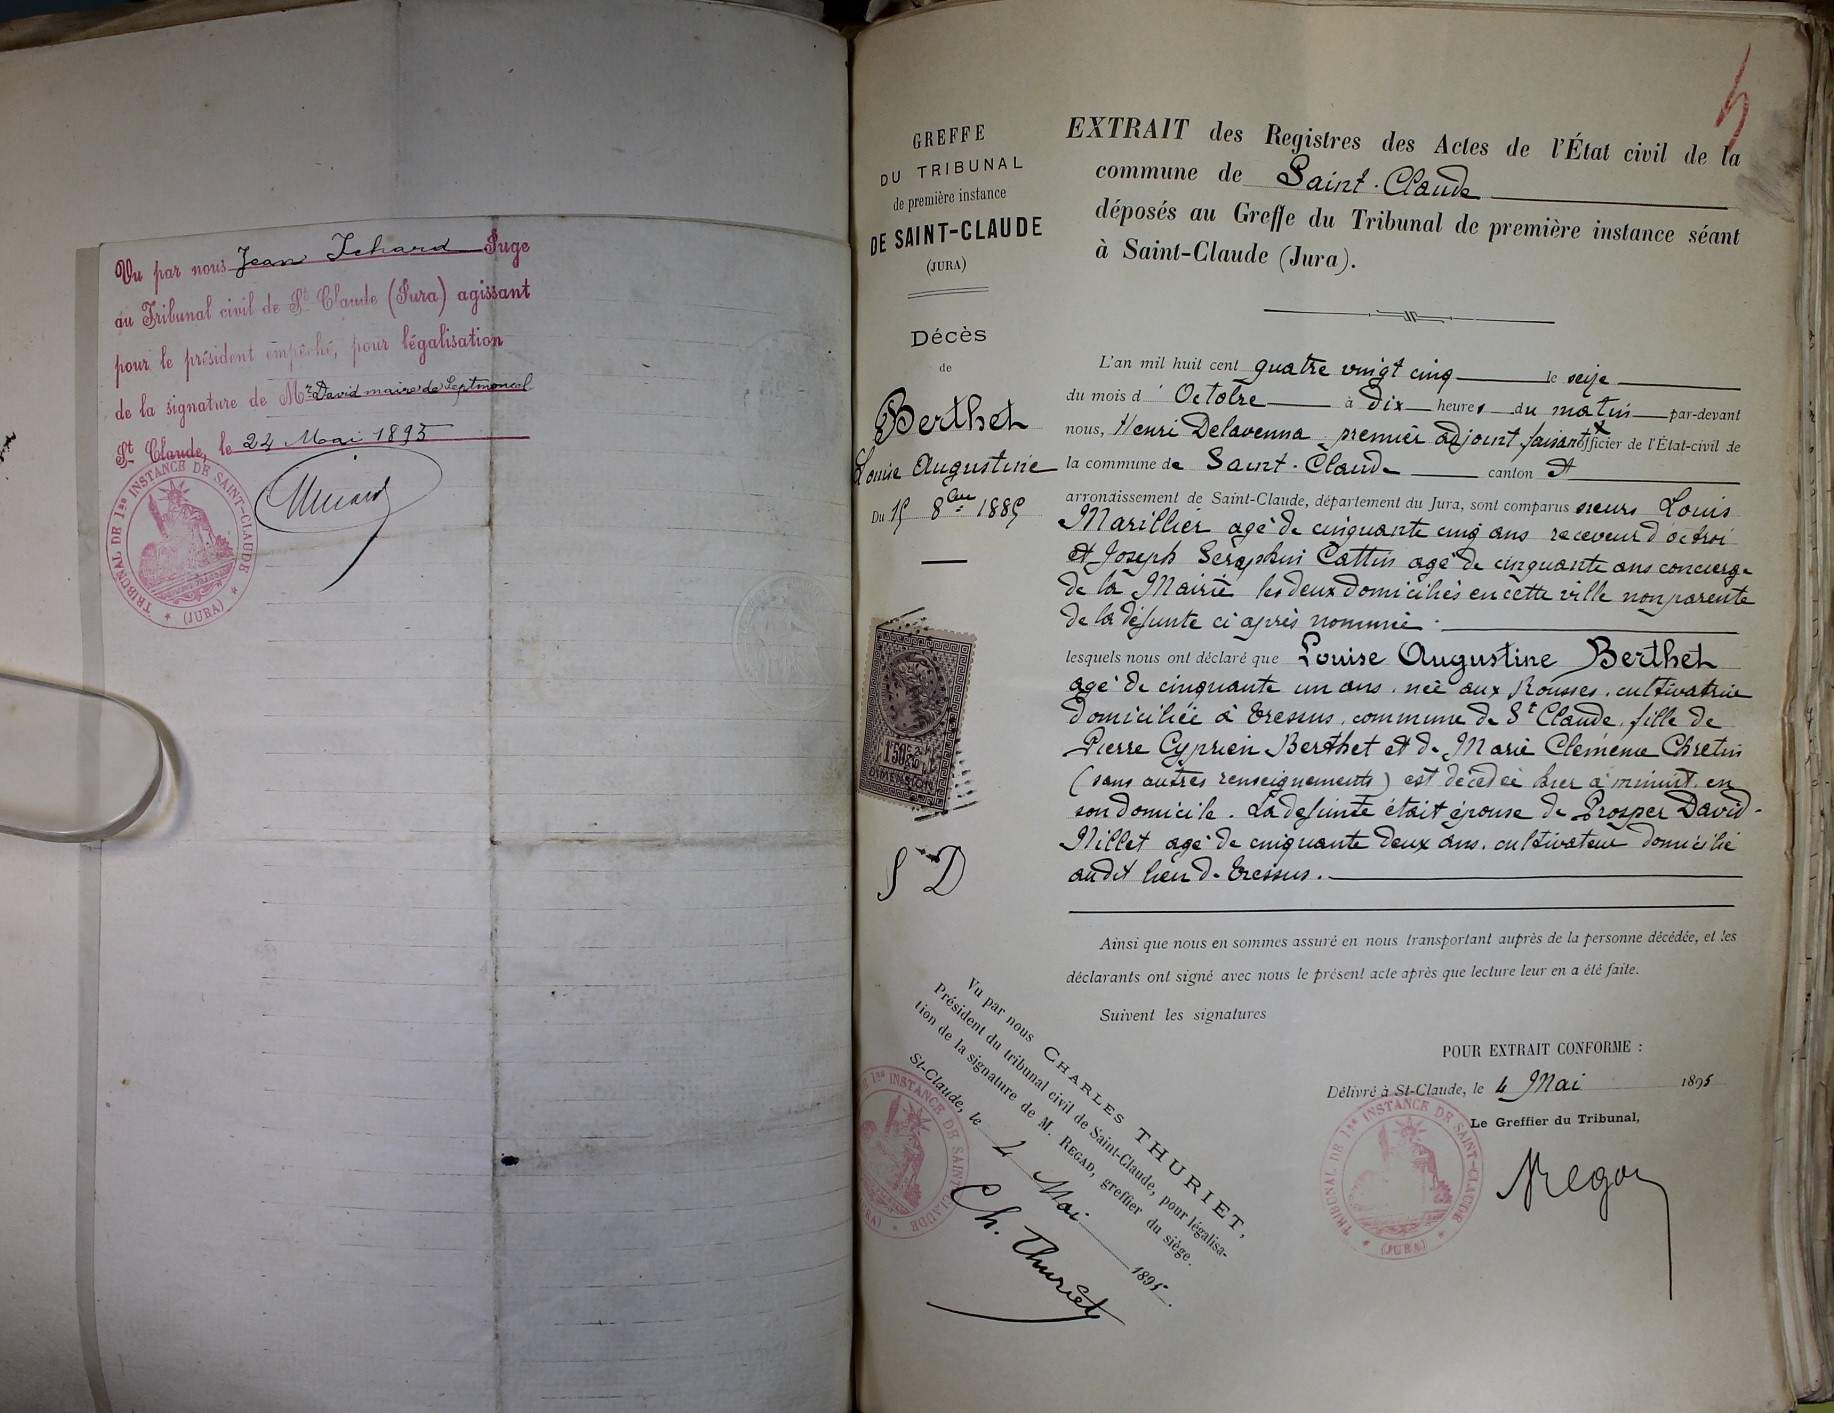 Vu par nous Jean Ichard Juge
au Tribunal civil de St Claude (Jura) agissant
pour le président empêché, pour légalisation
de la signature de Mr David maire de Septmoncel
St Claude, le 24 Mai 1895
TRIBUNAL DE 1re INSTANCE DE SAINT-CLAUDE
* (JURA) *
GREFFE
DU TRIBUNAL
de première instance
DE SAINT-CLAUDE
(JURA)
Décès
de
Berthet
Louise Augustine
Du 15 8bre 1885
1F50c
DIMENSION
S D
Vu par nous CHARLES THURIET,
Président du tribunal civil de Saint-Claude, pour légalisa-
tion de la signature de M. REGAD, greffier du siège.
St-Claude, le 4 Mai 1895.
Ch. Thuriet
EXTRAIT des Registres des Actes de l'État civil de la
commune de Saint-Claude
déposés au Greffe du Tribunal de première instance séant
à Saint-Claude (Jura).
L'an mil huit cent quatre vingt cinq le seize
du mois d'Octobre à dix heures du matin par-devant
nous, Henri Delavenna premier adjoint faisant officier de l'État-civil de
la commune de Saint-Claude canton et
arrondissement de Saint-Claude, département du Jura, sont comparus sieurs Louis
Marillier agé de cinquante cinq ans receveur d'octroi
et Joseph Seraphin Cattin agé de cinquante ans concierge
de la Mairie les deux domiciliés en cette ville non parente
de la défunte ci après nommée.
lesquels nous ont déclaré que Louise Augustine Berthet
agé de cinquante un ans. née aux Rousses. cultivatrice
domiciliée à Tressus, commune de St Claude, fille de
Pierre Cyprien Berthet et de Marie Clémence Chretin
(sans autres renseignements) est décédée hier à minuit. en
son domicile. La defunte était épouse de Prosper David-
Millet agé de cinquante deux ans. cultivateur domicilié
audit lieu de Tressus.
Ainsi que nous en sommes assuré en nous transportant auprès de la personne décédée, et les
déclarants ont signé avec nous le présent acte après que lecture leur en a été faite.
Suivent les signatures
POUR EXTRAIT CONFORME :
Délivré à St-Claude, le 4 Mai 1895
Le Greffier du Tribunal,
Regad
TRIBUNAL DE 1re INSTANCE DE SAINT-CLAUDE
* (JURA) *